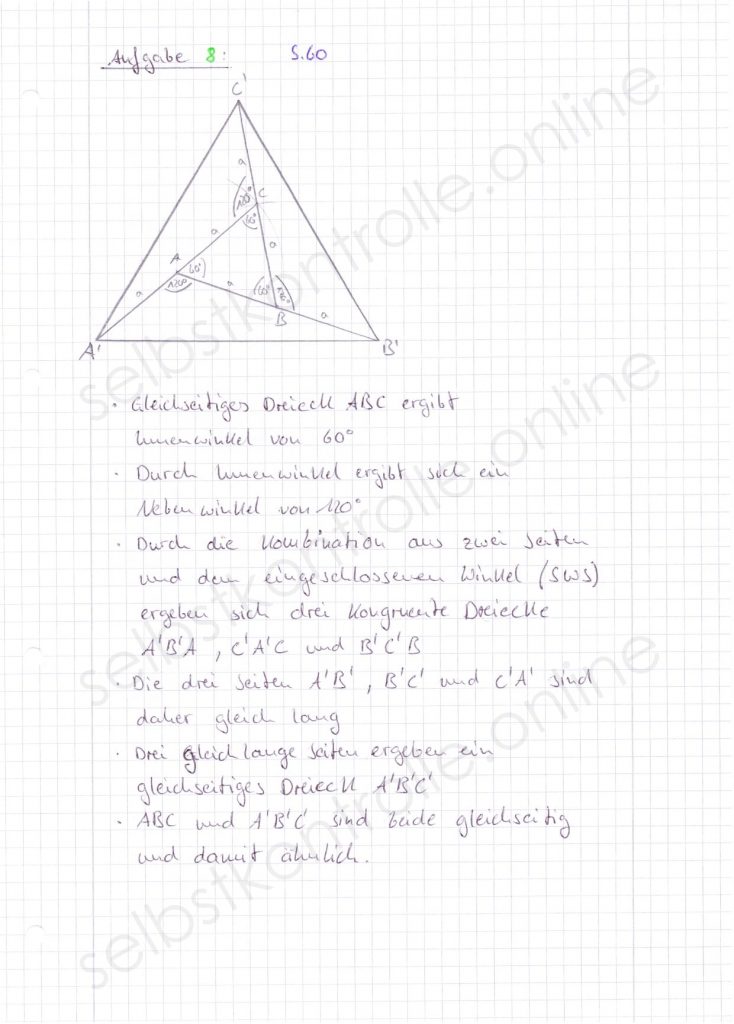 Aufgabe 8: S.60
C'
a
120°
C
60°
a
a
A
60°
a
120°
a
60°
120°
B
a
A'
B'
· Gleichseitiges Dreieck ABC ergibt
Innenwinkel von 60°
· Durch Innenwinkel ergibt sich ein
Nebenwinkel von 120°
· Durch die Kombination aus zwei Seiten
und dem eingeschlossenen Winkel (SWS)
ergeben sich drei kongruente Dreiecke
A'B'A , C'A'C und B'C'B
· Die drei Seiten A'B' , B'C' und C'A' sind
daher gleich lang
· Drei gleich lange Seiten ergeben ein
gleichseitiges Dreieck A'B'C'
· ABC und A'B'C' sind beide gleichseitig
und damit ähnlich.
selbstkontrolle.online
selbstkontrolle.online
selbstkontrolle.online